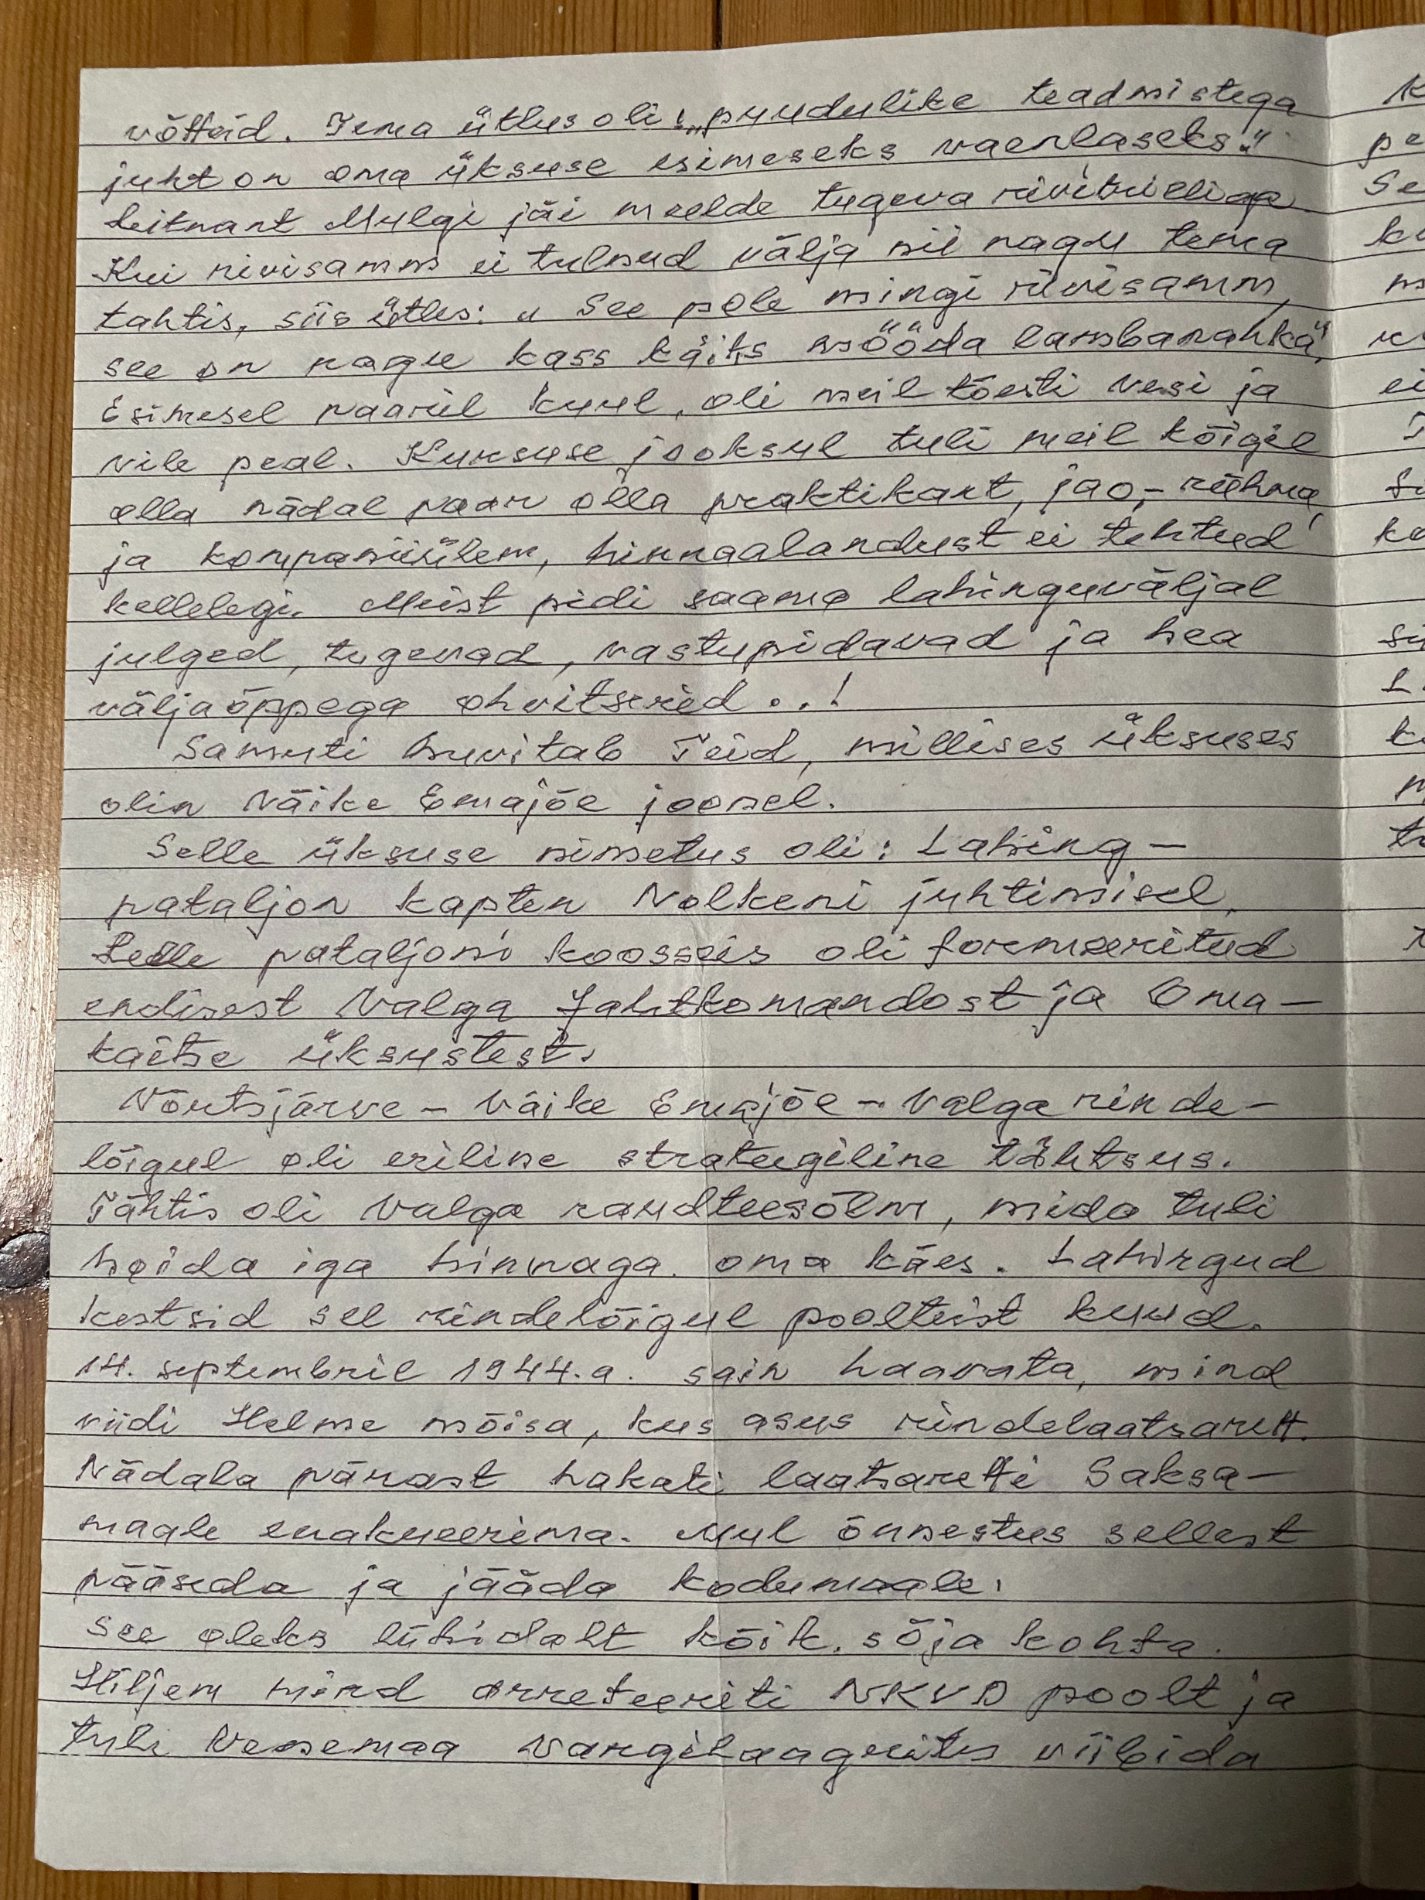 võtteid. Tema ütlus oli: „puudulike teadmistega
juht on oma üksuse esimeseks vaenlaseks."
Leitnant Mulgi jäi meelde tugeva rividrilliga.
Kui rivisamm ei tulnud välja nii nagu tema
tahtis, siis ütles: „See pole mingi rivisamm,
see on nagu kass käiks mööda lambanahka".
Esimesel paaril kuul, oli meil tõesti vesi ja
vile peal. Kursuse jooksul tuli meil kõigil
olla nädal paar olla praktikant, jao,- rühma,
ja kompaniiülem, hinnaalandust ei tehtud
kellelegi. Meist pidi saama lahinguväljal
julged, tugevad, vastupidavad ja hea
väljaõppega ohvitserid...!
Samuti huvitab Teid, millises üksuses
olin Väike Emajõe joonel.
Selle üksuse nimetus oli: Lahing-
pataljon kapten Nolkeni juhtimisel.
Selle pataljoni koosseis oli formeeritud
endisest Valga Jahtkomandost ja Oma-
kaitse üksustest.
Võrtsjärve - Väike Emajõe - Valga rinde-
lõigul oli eriline strateegiline tähtsus.
Tähtis oli Valga raudteesõlm, mida tuli
hoida iga hinnaga oma käes. Lahingud
kestsid sel rindelõigul poolteist kuud.
14. septembril 1944.a. sain haavata, mind
viidi Helme mõisa, kus asus rindelaatsarett.
Nädala pärast hakati laatsaretti Saksa-
maale evakueerima. Mul õnnestus sellest
pääseda ja jääda kodumaale.
See oleks lühidalt kõik. sõja kohta.
Hiljem mind arreteeriti NKVD poolt ja
tuli Venemaa vangilaagrites viibida